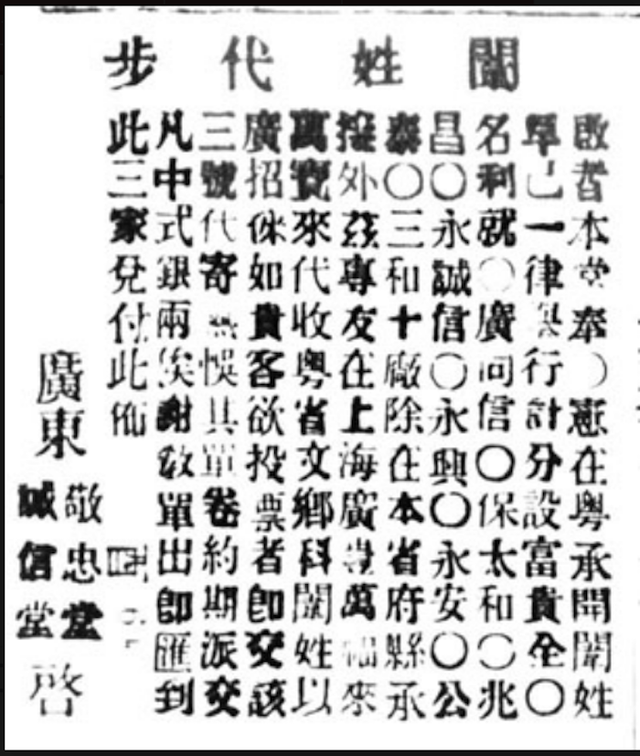 闈姓代步
啟者本堂奉〇憲在粵承開闈姓
早已一律舉行計分設富貴全〇
名利就〇廣同信〇保太和〇兆
昌〇永誠信〇永興〇永安〇公
泰〇三和十廠除在本省府縣承
接外茲專友在上海廣豊萬福來
萬寶來代收粵省文鄉科闈姓以
廣招徠如貴客欲投票者即交該
三號代寄無悞其單卷約期派交
凡中式銀兩俟謝教單出即匯到
此三家兌付此佈
廣東
敬忠堂
誠信堂
啓